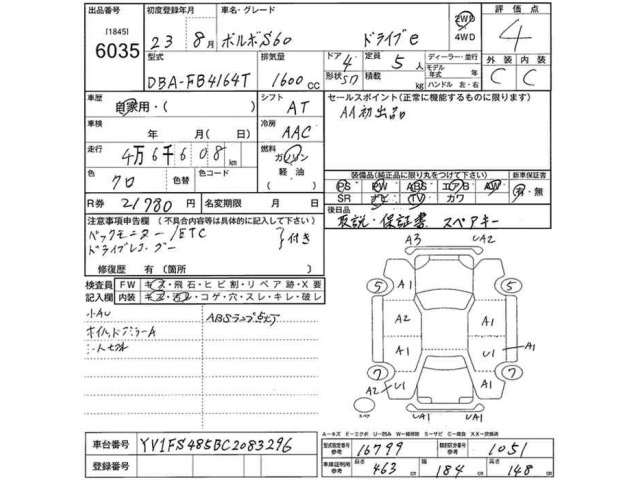 出品番号 初度登録年月 車名・グレード 評価点
[1845] 6035 23年 8月 ボルボS60 ドライブe 2WD 4WD 4
型式 排気量 ドア 4 定員 5人 ディーラー・並行 外装 内装
DBA-FB4164T 1600cc 形状 SD 積載 kg モデル年式 年 ハンドル 左・右 C C
車歴 自家用・( ) シフト AT セールスポイント(正常に機能するものに限ります)
車検 年 月( ) 冷房 AAC AA初出品
走行 4万6千608km 燃料 ガソリン 軽油
色 クロ 色替 色コード ( ) 装備品(純正品に限り丸をつけて下さい) 新車保証書
PS PW ABS エアB AW 有・無
R券 21780円 名変期限 月 日 SR ナビ TV カワ
注意事項申告欄(不具合内容等は具体的に記入して下さい) 後日品
バックモニター/ETC 付き 取説・保証書 スペアキー
修復歴 有(箇所 )
検査員記入欄 FW キズ・飛石・ヒビ割・リペア跡・X要
内装 キズ・汚レ・コゲ・穴・スレ・キレ・破レ
小AU ABSランプ点灯
A3 UA2
5 A1 A1 5
A2 A2
A1 U1 A1
7 A2 U1 A1 7
スペア UA1 UA1
A-キズ E-エクボ U-凹み W-補修跡 S-サビ C-腐食 XX-交換済
車台番号 YV1FS485BC2083296 型式指定番号 参考 16799 類別区分番号 参考 1051
登録番号 車庫証明用 参考 長さ 463cm 幅 184cm 高さ 148cm